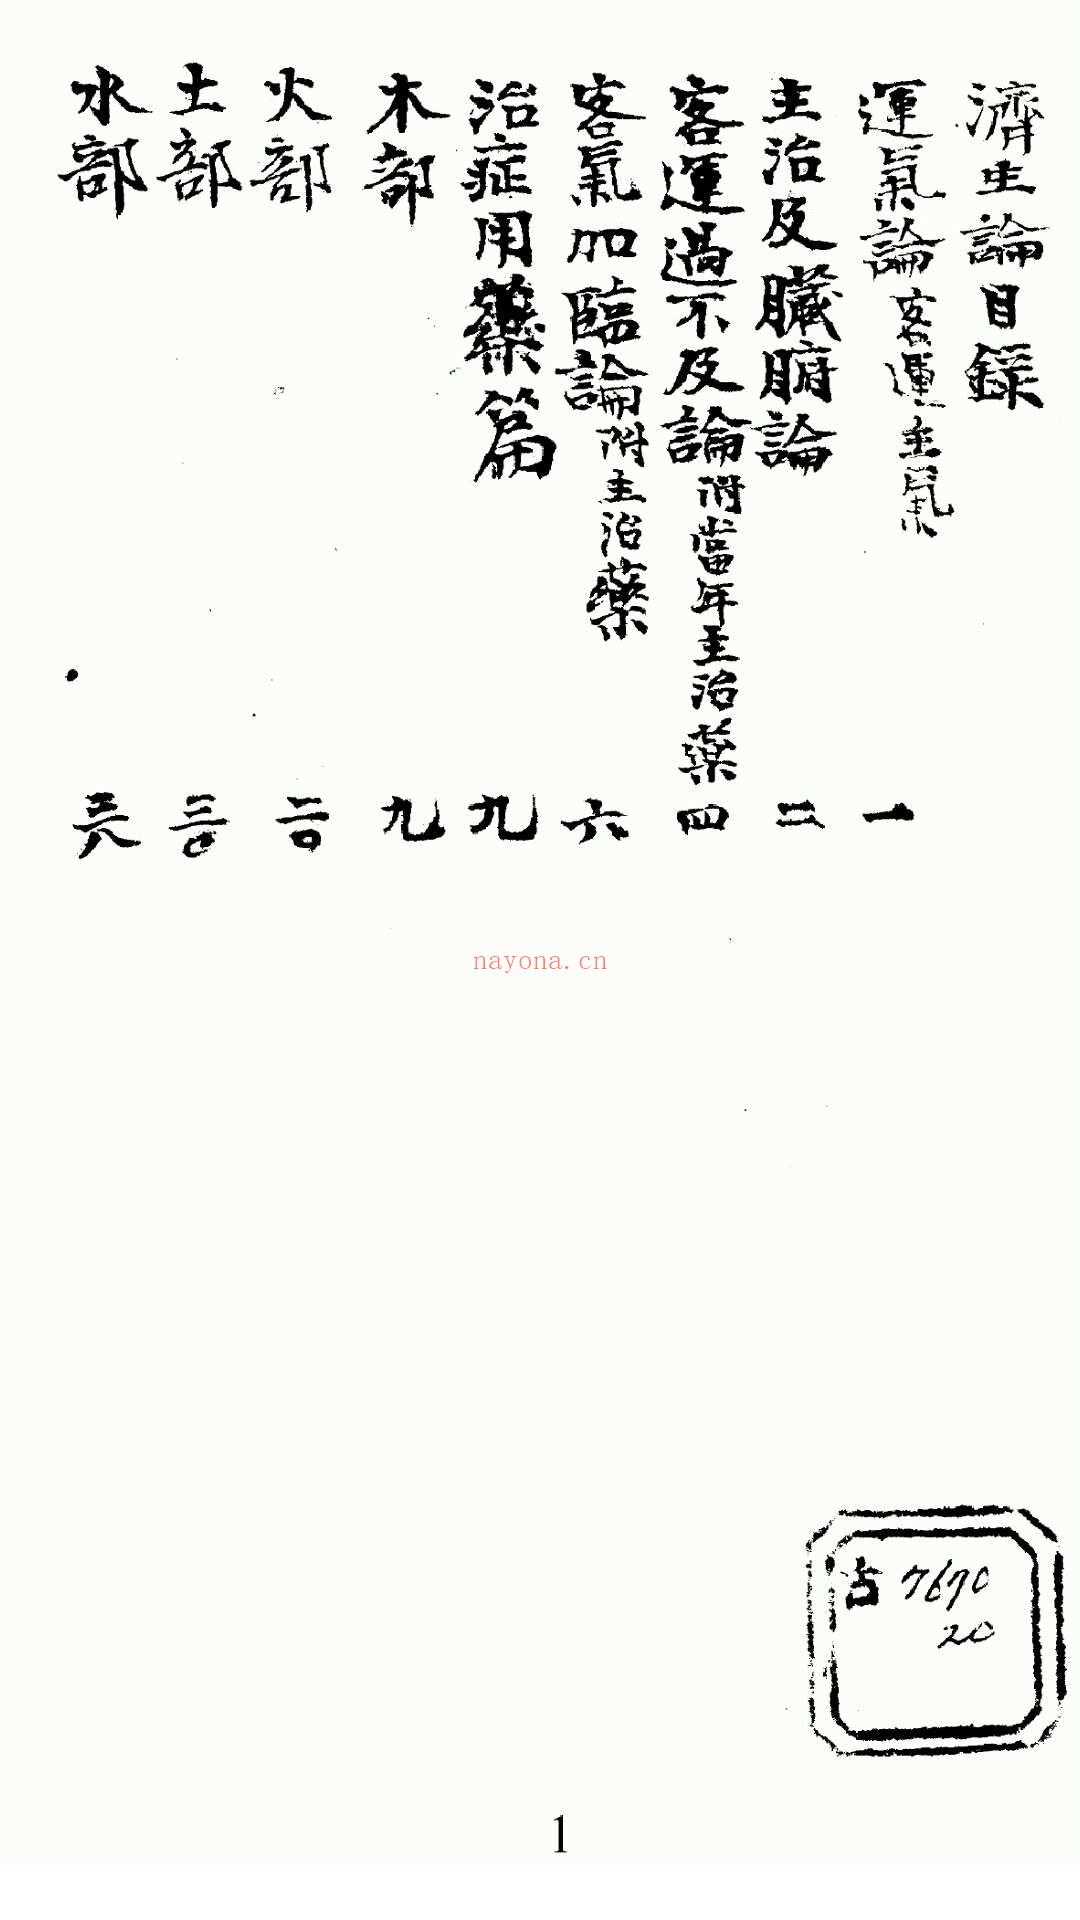 濟生論目錄
運氣論客運主氣 一
主治及臟腑論 二
客運過不及論附當年主治藥 四
客氣加臨論附主治藥 六
治症用藥篇 九
木部 九
火部 二〇
土部 三〇
水部 三八
nayona.cn
古 7690
20
1